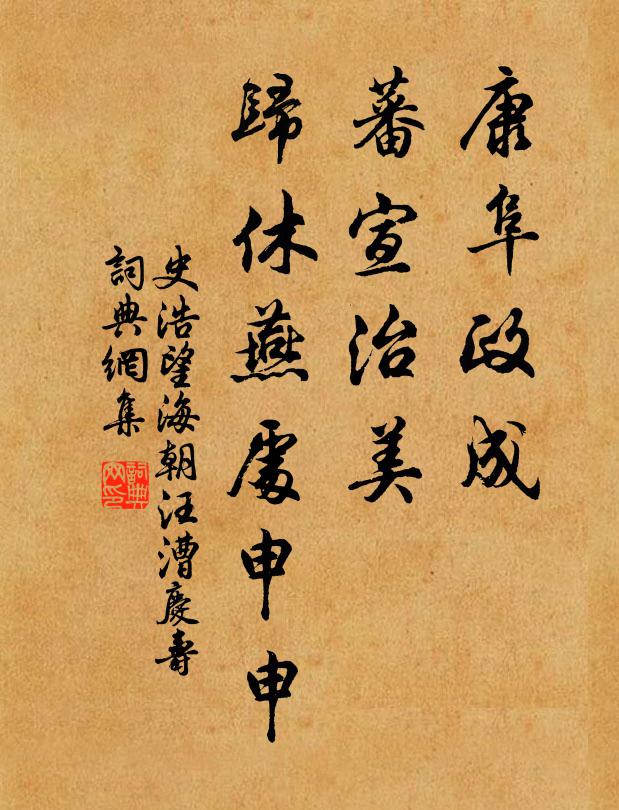 康阜政成
蕃宣治美
歸休燕處申申
史浩望海朝汪漕慶壽
詞典網集
詞典
网印